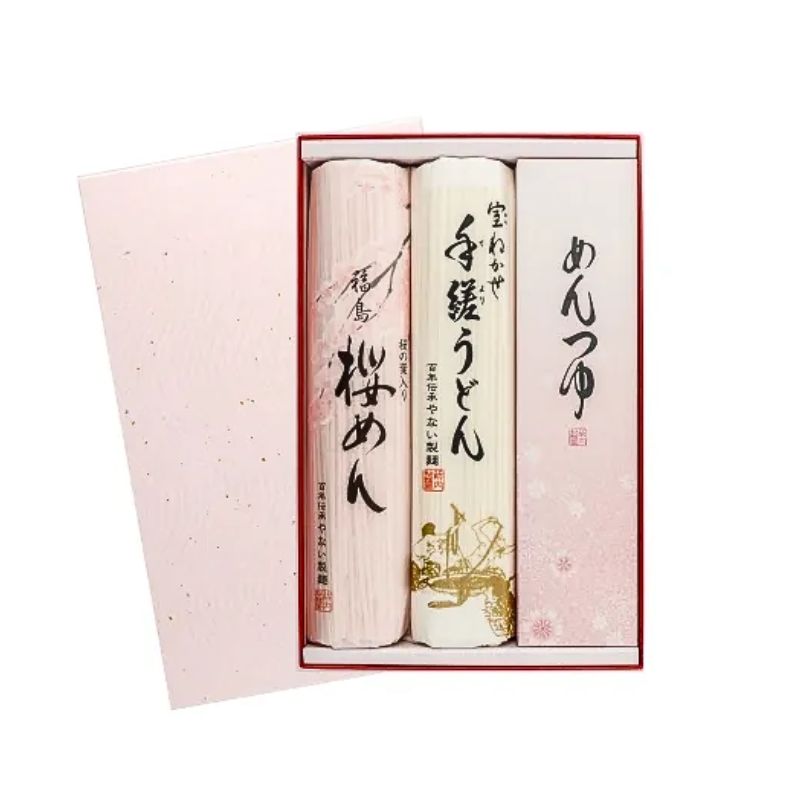 福島
桜めん
桜の葉入り
百年伝承やない製麺
室ねかせ
手縒うどん
より
百年伝承やない製麺
めんつゆ